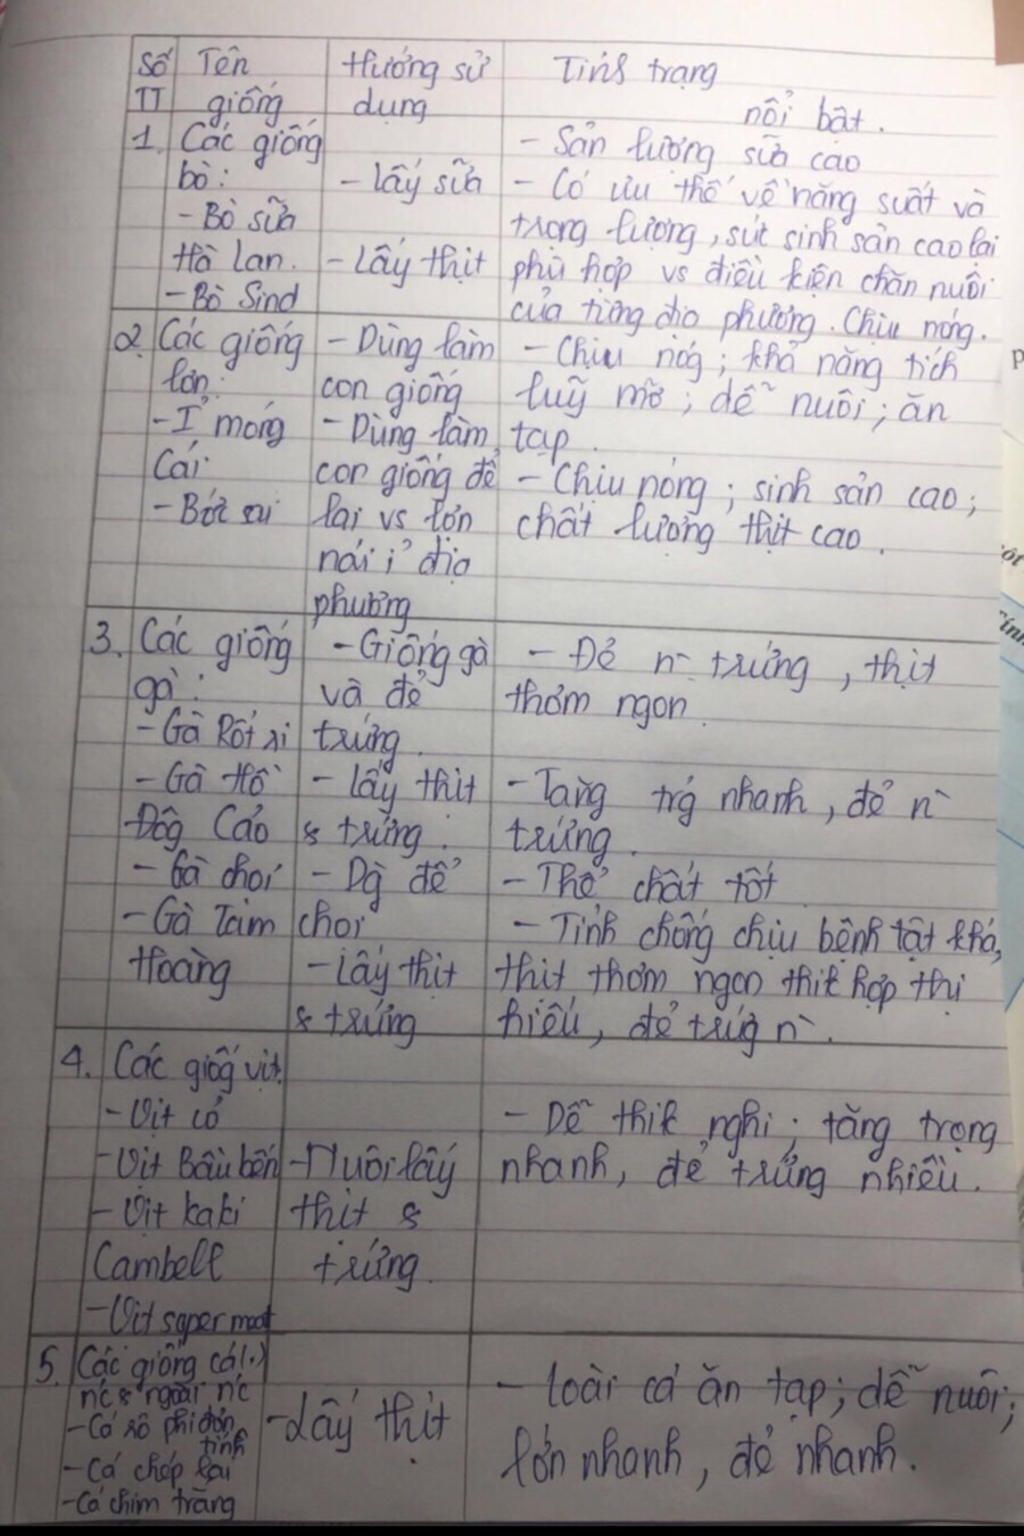 Số Tên Hướng sử Tính trạng
TT giống dụng nổi bật.
1. Các giống - Sản lượng sữa cao
bò: - Lấy sữa - Có ưu thế về năng suất và
- Bò sữa trọng lượng, sức sinh sản cao lai
Hà Lan. - Lấy thịt phù hợp vs điều kiện chăn nuôi
- Bò Sind của từng địa phương. Chịu nóng.
2. Các giống - Dùng làm - Chịu nóg; khả năng tích
lợn: con giống luỹ mỡ; dễ nuôi; ăn
- Ỉ móng - Dùng làm tạp.
Cái con giống để - Chịu nóng; sinh sản cao;
- Bớc sai lai vs lợn chất lượng thịt cao.
nái ỉ địa
phương
3. Các giống - Giống gà - Đẻ n` trứng, thịt
gà: và đẻ thơm ngon.
- Gà Rốt ri trứng.
- Gà Hồ - lấy thịt - Tăng trg nhanh, đẻ n`
Đôg Cảo & trứng. trứng.
- Gà chọi - Gà để - Thể chất tốt
- Gà Tam chọi - Tính chống chịu bệnh tật khá,
Hoàng - Lấy thịt thịt thơm ngon thik hợp thị
& trứng hiếu, đẻ trứg n`.
4. Các giốg vịt.
- Vịt cỏ - Dễ thik nghi; tăng trọng
- Vịt Bầu bến - Nuôi lấy nhanh, đẻ trứng nhiều.
- Vịt kaki thịt &
Cambell trứng.
- Vịt super meat
5. Các giống cá (.)
nc & ngoài nc - Loài cá ăn tạp; dễ nuôi;
- Cá rô phi đơn - Lấy thịt
tính lớn nhanh, đẻ nhanh.
- Cá chép lai
- Cá chim trắng